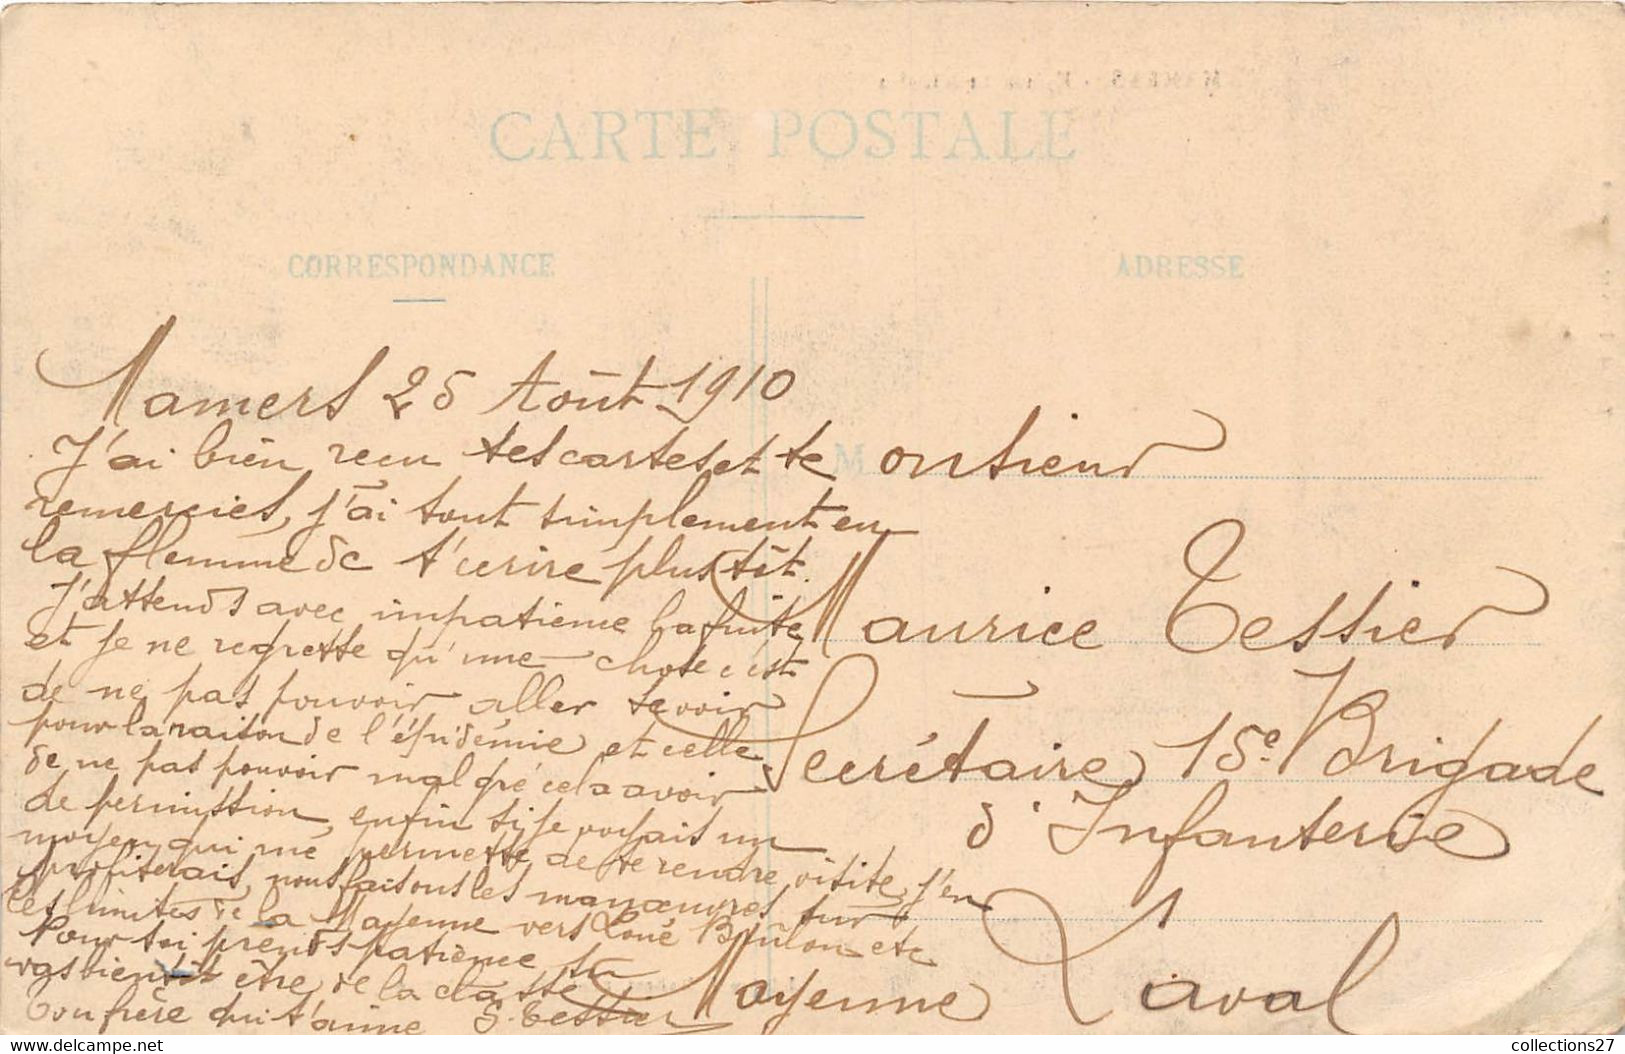 CARTE POSTALE
CORRESPONDANCE
ADRESSE
Mamers 25 Août 1910
J'ai bien recu tes cartes et te
remercies, j'ai tout simplement eu
la flemme de t'ecrire plus tôt.
J'attends avec impatience la fuite
et je ne regrette qu'une chose c'est
de ne pas pouvoir aller te voir
pour la raison de l'épidémie et celle
de ne pas pouvoir malgré cela avoir
de permission, enfin si je voyais un
moyen qui me permette de te rendre visite j'en
profiterais, nous faisons les manœuvres sur
les limites de la Mayenne vers Loué Brûlon etc
Pour toi prends patience tu
vas bientôt être de la classe
Ton frère qui t'aime G. Tessier
Monsieur
Maurice Tessier
Secrétaire 15e Brigade
d'Infanterie
Laval
Mayenne
collections27